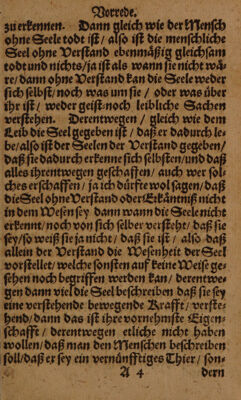 Vorrede.
zu erkennen. Dann gleich wie der Mensch
ohne Seele todt ist / also ist die menschliche
Seel ohne Verstand ebenmäßig gleichsam
todt und nichts / ja ist als wann sie nicht wä-
re / dann ohne Verstand kan die Seele weder
sich selbst / noch was um sie / oder was über
ihr ist / weder geist- noch leibliche Sachen
verstehen. Derentwegen / gleich wie dem
Leib die Seel gegeben ist / daß er dadurch le-
be / also ist der Seelen der Verstand gegeben /
daß sie dadurch erkenne sich selbsten / und daß
alles ihrentwegen geschaffen / auch wer sol-
ches erschaffen / ja ich dürfte wol sagen / daß
die Seel ohne Verstand oder Erkäntniß nicht
in dem Wesen sey dann wann die Seele nicht
erkennt / noch von sich selber versteht / daß sie
sey / so weiß sie ja nicht / daß sie ist / also daß
allein der Verstand die Wesenheit der Seel
vorstellet / welche sonsten auf keine Weise ge-
sehen noch begriffen werden kan / derentwe-
gen dann viel die Seel beschreiben daß sie sey
eine verstehende bewegende Krafft / verste-
hend / dann das ist ihre vornehmste Eigen-
schafft / derentwegen etliche nicht haben
wollen / daß man den Menschen beschreiben
soll / daß er sey ein vernünfftiges Thier / son-
A 4 dern